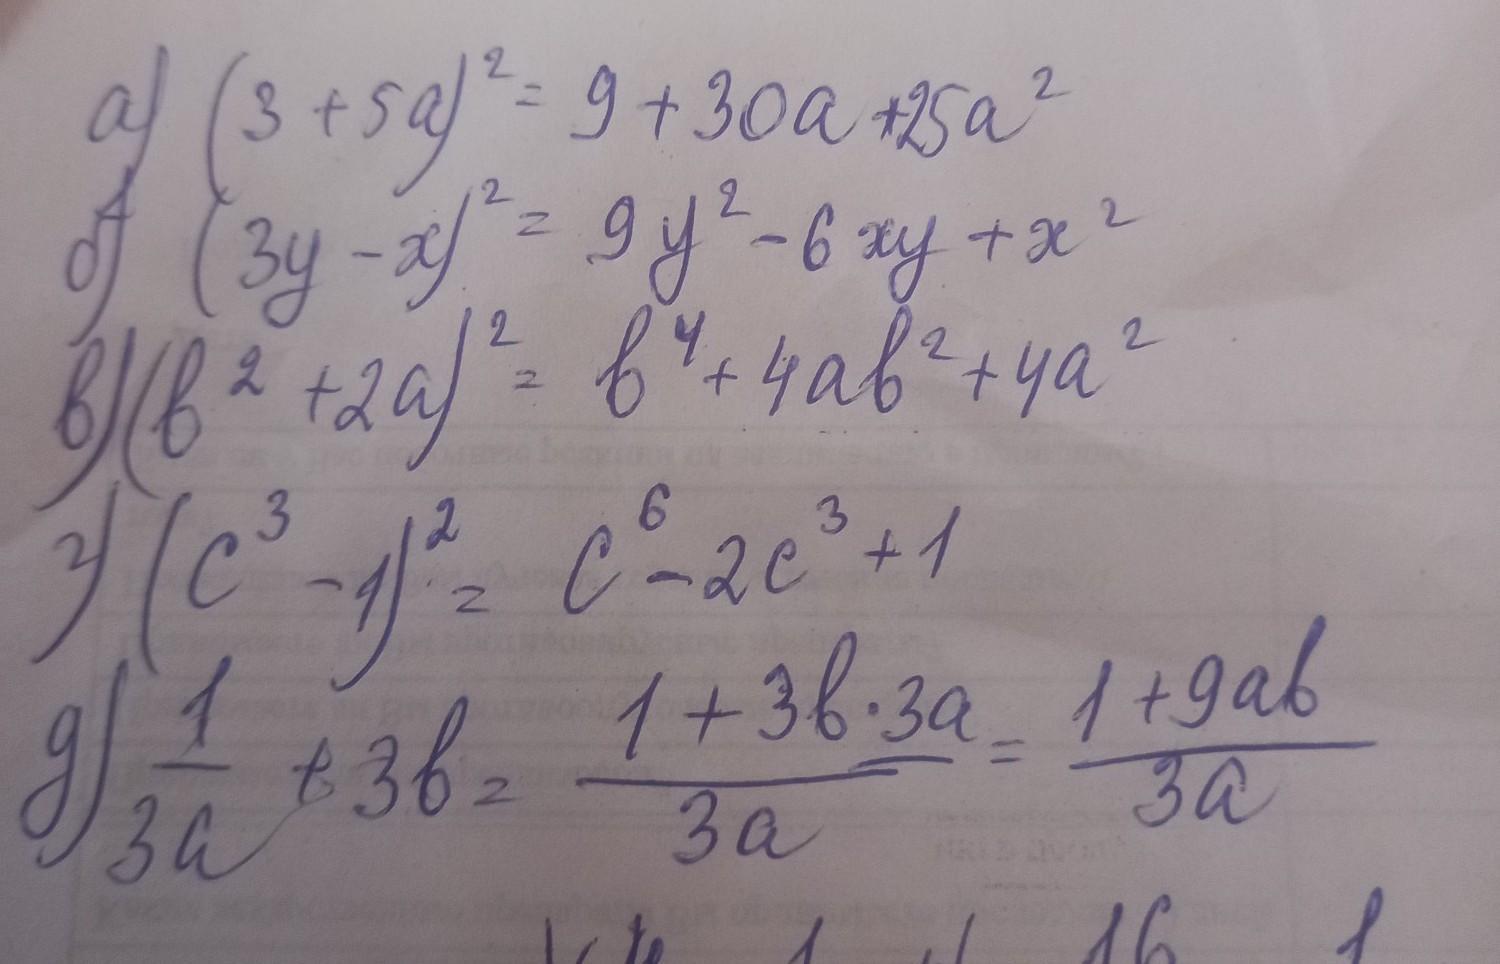 а) (3 + 5a)² = 9 + 30a + 25a²
б) (3y - x)² = 9y² - 6xy + x²
в) (b² + 2a)² = b⁴ + 4ab² + 4a²
г) (c³ - 1)² = c⁶ - 2c³ + 1
д) 1/3a + 3b = 1 + 3b · 3a/3a = 1 + 9ab/3a